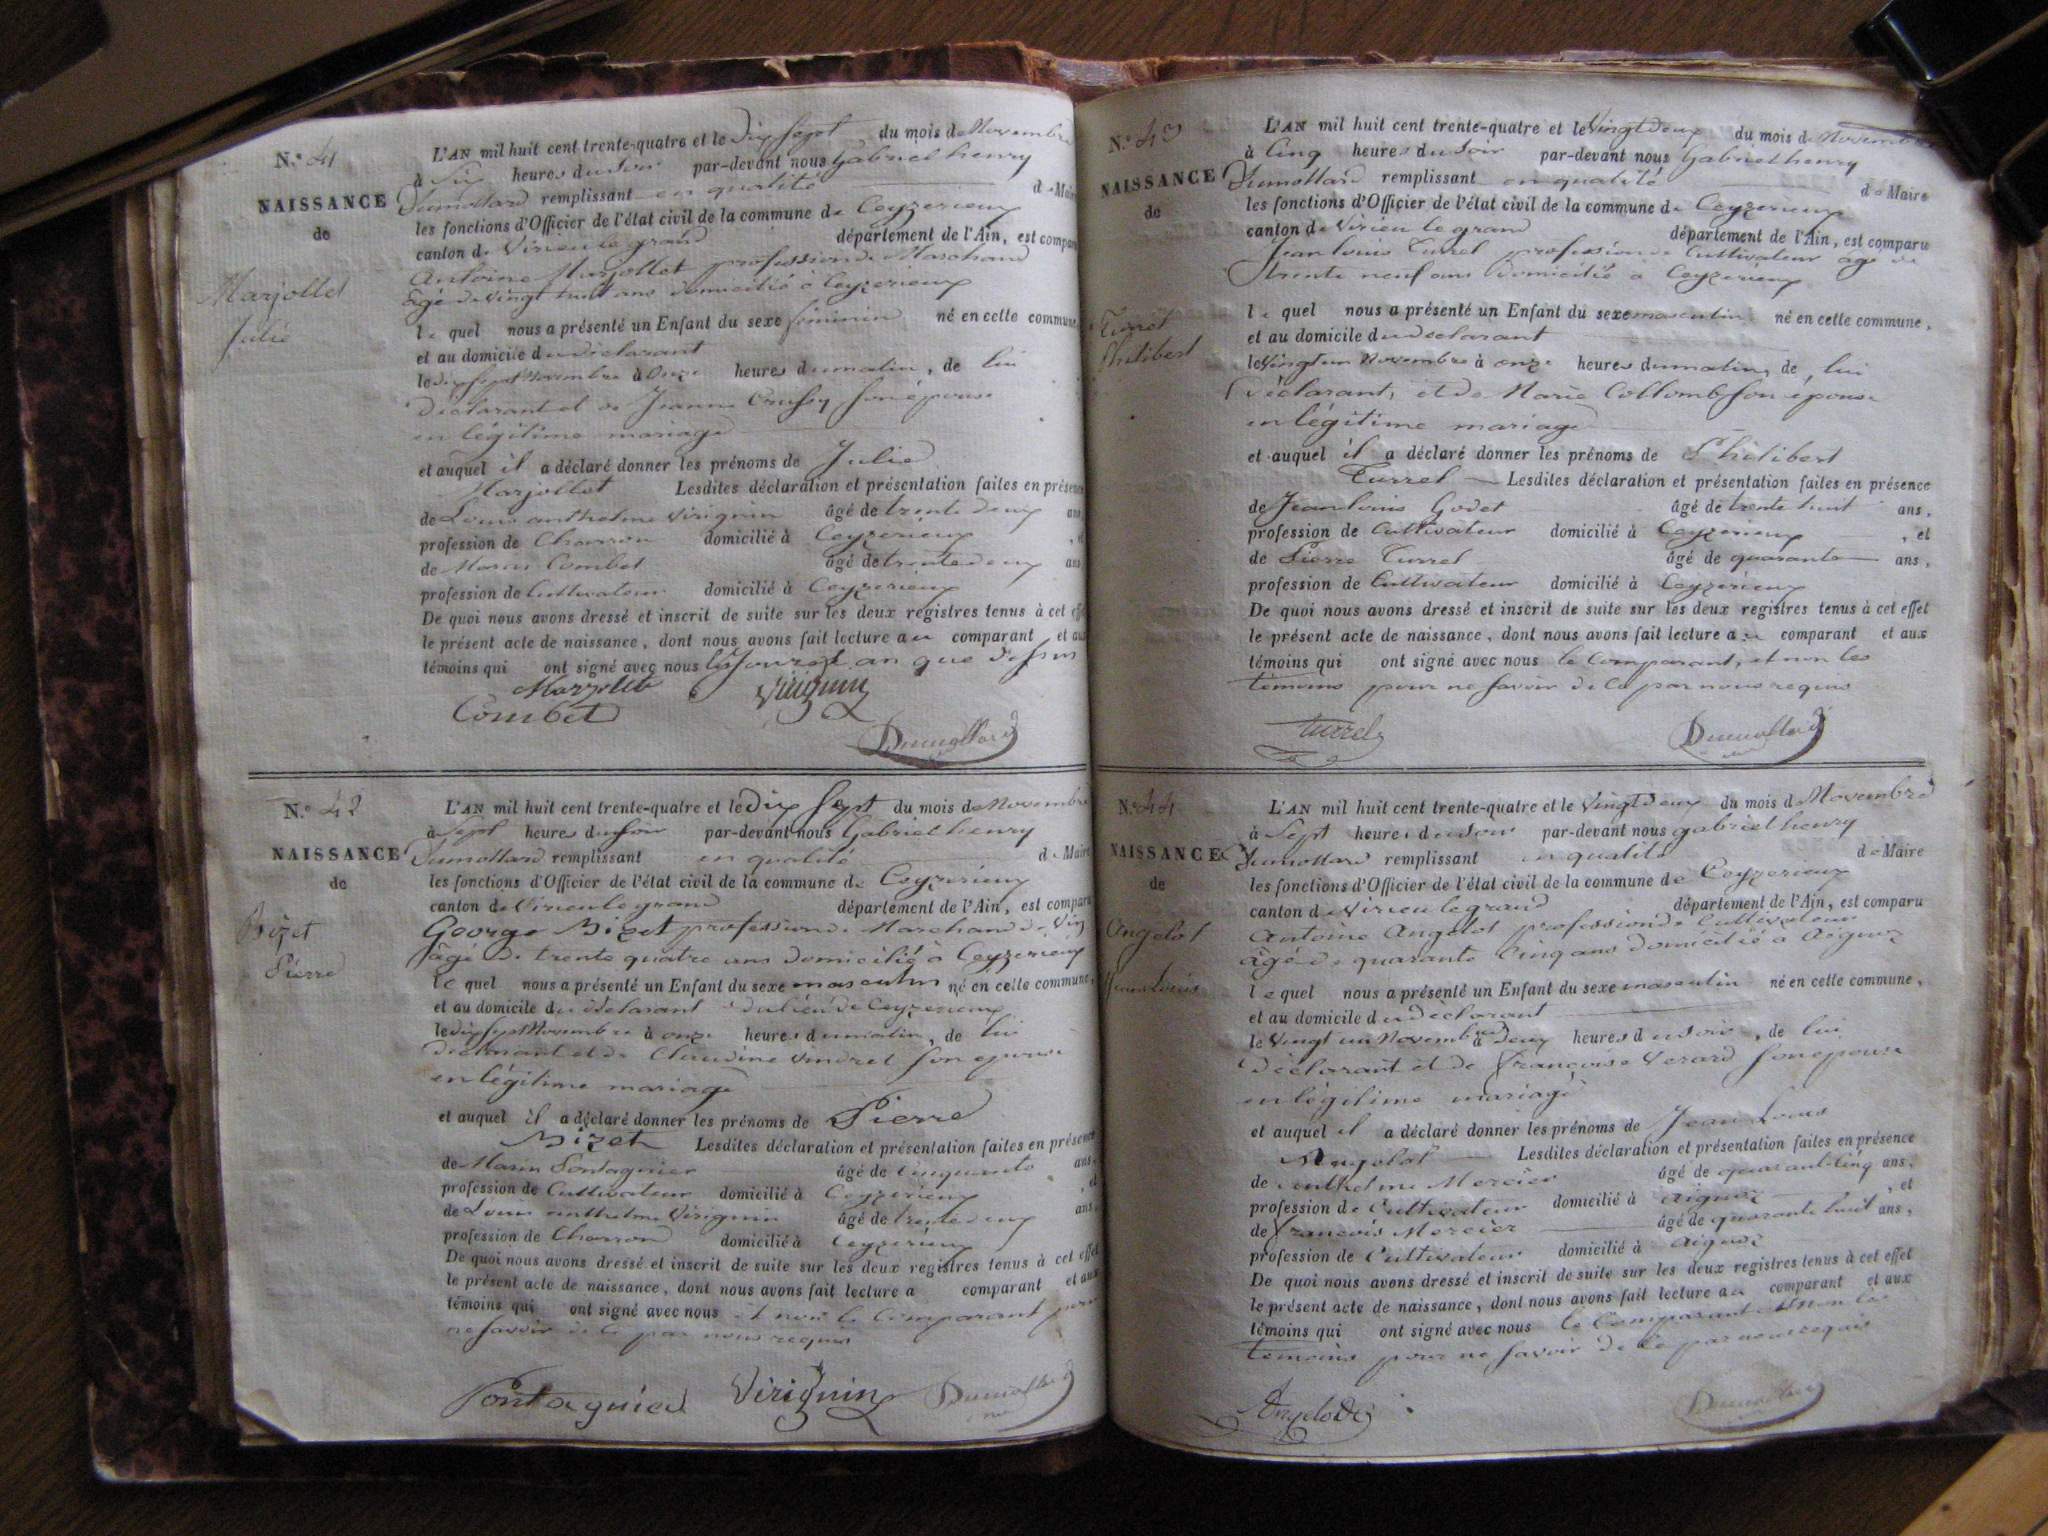 N.° 41
NAISSANCE
de
Marjollet
Julie
L'AN mil huit cent trente-quatre et le Dix Sept du mois de Novembre
à Six heures du Soir par-devant nous Gabriel henry
Dumollard remplissant en qualité de Maire
les fonctions d'Officier de l'état civil de la commune de Ceyzerieux
canton de Virieu le grand département de l'Ain, est comparu
Antoine Marjollet profession de Marchand
âgé de vingt huit ans domicilié à Ceyzerieux
le quel nous a présenté un Enfant du sexe féminin né en cette commune,
et au domicile du déclarant
le dix sept Novembre à Onze heures du matin, de lui
déclarant et de Jeanne son épouse
en légitime mariage
et auquel il a déclaré donner les prénoms de Julie
Marjollet Lesdites déclaration et présentation faites en présence
de Louis anthelme Virignin âgé de trente deux ans,
profession de Charron domicilié à Ceyzerieux, et
de Marin Combet âgé de trente deux ans
profession de Cultivateur domicilié à Ceyzerieux
De quoi nous avons dressé et inscrit de suite sur les deux registres tenus à cet effet
le présent acte de naissance, dont nous avons fait lecture au comparant et aux
témoins qui ont signé avec nous les jour et an que dessus
Marjollet Virignin
Combet
Dumollard
N.° 42
NAISSANCE
de
Bizet
Pierre
L'AN mil huit cent trente-quatre et le Dix Sept du mois de Novembre
à Sept heures du soir par-devant nous Gabriel henry
Dumollard remplissant en qualité de Maire
les fonctions d'Officier de l'état civil de la commune de Ceyzerieux
canton de Virieu le grand département de l'Ain, est comparu
George Bizet profession de Marchand de Vin
âgé de trente quatre ans domicilié à Ceyzerieux
le quel nous a présenté un Enfant du sexe masculin né en cette commune,
et au domicile du déclarant du lieu de Ceyzerieux
le dix sept Novembre à onze heures du matin, de lui
déclarant et de Claudine Vindret son épouse
en légitime mariage
et auquel il a déclaré donner les prénoms de Pierre
Bizet Lesdites déclaration et présentation faites en présence
de Marin Pontagnier âgé de Cinquante ans,
profession de Cultivateur domicilié à Ceyzerieux, et
de Louis anthelme Virignin âgé de trente deux ans,
profession de Charron domicilié à Ceyzerieux
De quoi nous avons dressé et inscrit de suite sur les deux registres tenus à cet effet
le présent acte de naissance, dont nous avons fait lecture a comparant et aux
témoins qui ont signé avec nous et non le Comparant pour
ne savoir de ce par nous requis
Pontagnier Virignin Dumollard
N.° 43
NAISSANCE
de
Turrel
Philibert
L'AN mil huit cent trente-quatre et le Vingt Deux du mois de Novembre
à Cinq heures du Soir par-devant nous Gabriel henry
Dumollard remplissant en qualité de Maire
les fonctions d'Officier de l'état civil de la commune de Ceyzerieux
canton de Virieu le grand département de l'Ain, est comparu
Jean Louis Turrel profession de Cultivateur âgé de
trente neuf ans domicilié à Ceyzerieux
le quel nous a présenté un Enfant du sexe masculin né en cette commune,
et au domicile du déclarant
le Vingt un Novembre à onze heures du matin, de lui
déclarant, et de Marie Collomb son épouse
en légitime mariage
et auquel il a déclaré donner les prénoms de Philibert
Turrel Lesdites déclaration et présentation faites en présence
de Jean Louis Godet âgé de trente huit ans,
profession de Cultivateur domicilié à Ceyzerieux, et
de Pierre Turrel âgé de quarante ans,
profession de Cultivateur domicilié à Ceyzerieux
De quoi nous avons dressé et inscrit de suite sur les deux registres tenus à cet effet
le présent acte de naissance, dont nous avons fait lecture au comparant et aux
témoins qui ont signé avec nous le Comparant, et non les
témoins pour ne savoir de ce par nous requis
turrel Dumollard
N.° 44
NAISSANCE
de
Angelot
Jean Louis
L'AN mil huit cent trente-quatre et le Vingt Deux du mois de Novembre
à Sept heures du Soir par-devant nous gabriel henry
Dumollard remplissant en qualité de Maire
les fonctions d'Officier de l'état civil de la commune de Ceyzerieux
canton de Virieu le grand département de l'Ain, est comparu
Antoine Angelot profession de Cultivateur
âgé de quarante Cinq ans domicilié à Aignoz
le quel nous a présenté un Enfant du sexe masculin né en cette commune,
et au domicile du déclarant
le Vingt un Novembre à deux heures du Soir, de lui
déclarant et de françoise Verard son épouse
en légitime mariage
et auquel il a déclaré donner les prénoms de Jean Louis
Angelot Lesdites déclaration et présentation faites en présence
de anthelme Mercier âgé de quarant-cinq ans,
profession de Cultivateur domicilié à Aignoz, et
de françois Mercier âgé de quarante huit ans,
profession de Cultivateur domicilié à Aignoz
De quoi nous avons dressé et inscrit de suite sur les deux registres tenus à cet effet
le présent acte de naissance, dont nous avons fait lecture au comparant et aux
témoins qui ont signé avec nous le Comparant et Non les
témoins pour ne savoir de ce par nous requis
Angelot Dumollard